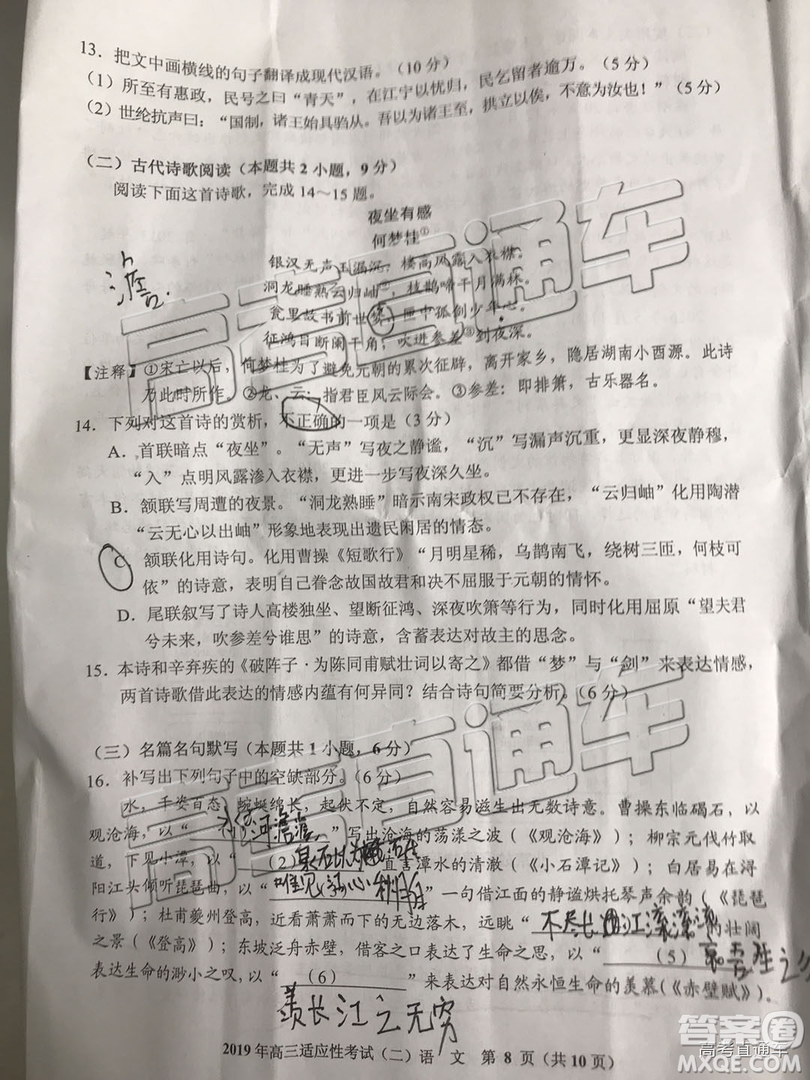 13．把文中画横线的句子翻译成现代汉语。（10 分）
（1）所至有惠政，民号之曰“青天”，在江宁以忧归，民乞留者逾万。（5 分）
（2）世纶抗声曰：“国制，诸王始具驺从。吾以为诸王至，拱立以俟，不意为汝也！”（5 分）
（二）古代诗歌阅读（本题共 2 小题，9 分）
阅读下面这首诗歌，完成 14～15 题。
夜坐有感
何梦桂①
银汉无声玉漏沉，楼高风露入衣襟。
洞龙睡熟云归岫②，枝鹊啼干月满林。
瓮里故书前世梦，匣中孤剑少年心。
征鸿目断阑干角，吹进参差③到夜深。
澹
【注释】①宋亡以后，何梦桂为了避免元朝的累次征辟，离开家乡，隐居湖南小酉源。此诗
乃此时所作。②龙、云：指君臣风云际会。③参差：即排箫，古乐器名。
14．下列对这首诗的赏析，不正确的一项是（3 分）
A．首联暗点“夜坐”。“无声”写夜之静谧，“沉”写漏声沉重，更显深夜静穆，
“入”点明风露渗入衣襟，更写出夜深久坐。
B．颔联写周遭的夜景。“洞龙熟睡”暗示南宋政权已不存在，“云归岫”化用陶潜
“云无心以出岫”形象地表现出遗民闲居的情态。
C．颔联化用诗句。化用曹操《短歌行》“月明星稀，乌鹊南飞，绕树三匝，何枝可
依”的诗意，表明自己眷念故国故君和决不屈服于元朝的情怀。
D．尾联叙写了诗人高楼独坐、望断征鸿、深夜吹箫等行为，同时化用屈原“望夫君
兮未来，吹参差兮谁思”的诗意，含蓄表达对故主的思念。
15．本诗和辛弃疾的《破阵子·为陈同甫赋壮词以寄之》都借“梦”与“剑”来表达情感，
两首诗歌借此表达的情感内蕴有何异同？结合诗句简要分析。（6 分）
（三）名篇名句默写（本题共 1 小题，6 分）
16．补写出下列句子中的空缺部分。（6 分）
水，千姿百态，蜿蜒绵长，起伏不定，自然容易滋生出无数诗意。曹操东临碣石，以
观沧海，以“水何澹澹”写出沧海的荡漾之波（《观沧海》）；柳宗元伐竹取
道，下见小潭，以“（2）”直言潭水的清澈（《小石潭记》）；白居易在浔
阳江头倾听琵琶曲，以“唯见江心秋月白”一句借江面的静谧烘托琴声余韵（《琵琶
行》）；杜甫夔州登高，近看萧萧而下的无边落木，远眺“不尽长江滚滚流”的壮阔
之景（《登高》）；东坡泛舟赤壁，借客之口表达了生命之思，以“（5）哀吾生之
表达生命的渺小之叹，以“（6）”来表达对自然永恒生命的羡慕（《赤壁赋》）。
羡长江之无穷
2019 年高三适应性考试（二）语 文 第 8 页（共 10 页）
高考直通车
高考直通车
答案圈
高考直通车
MXQE.COM